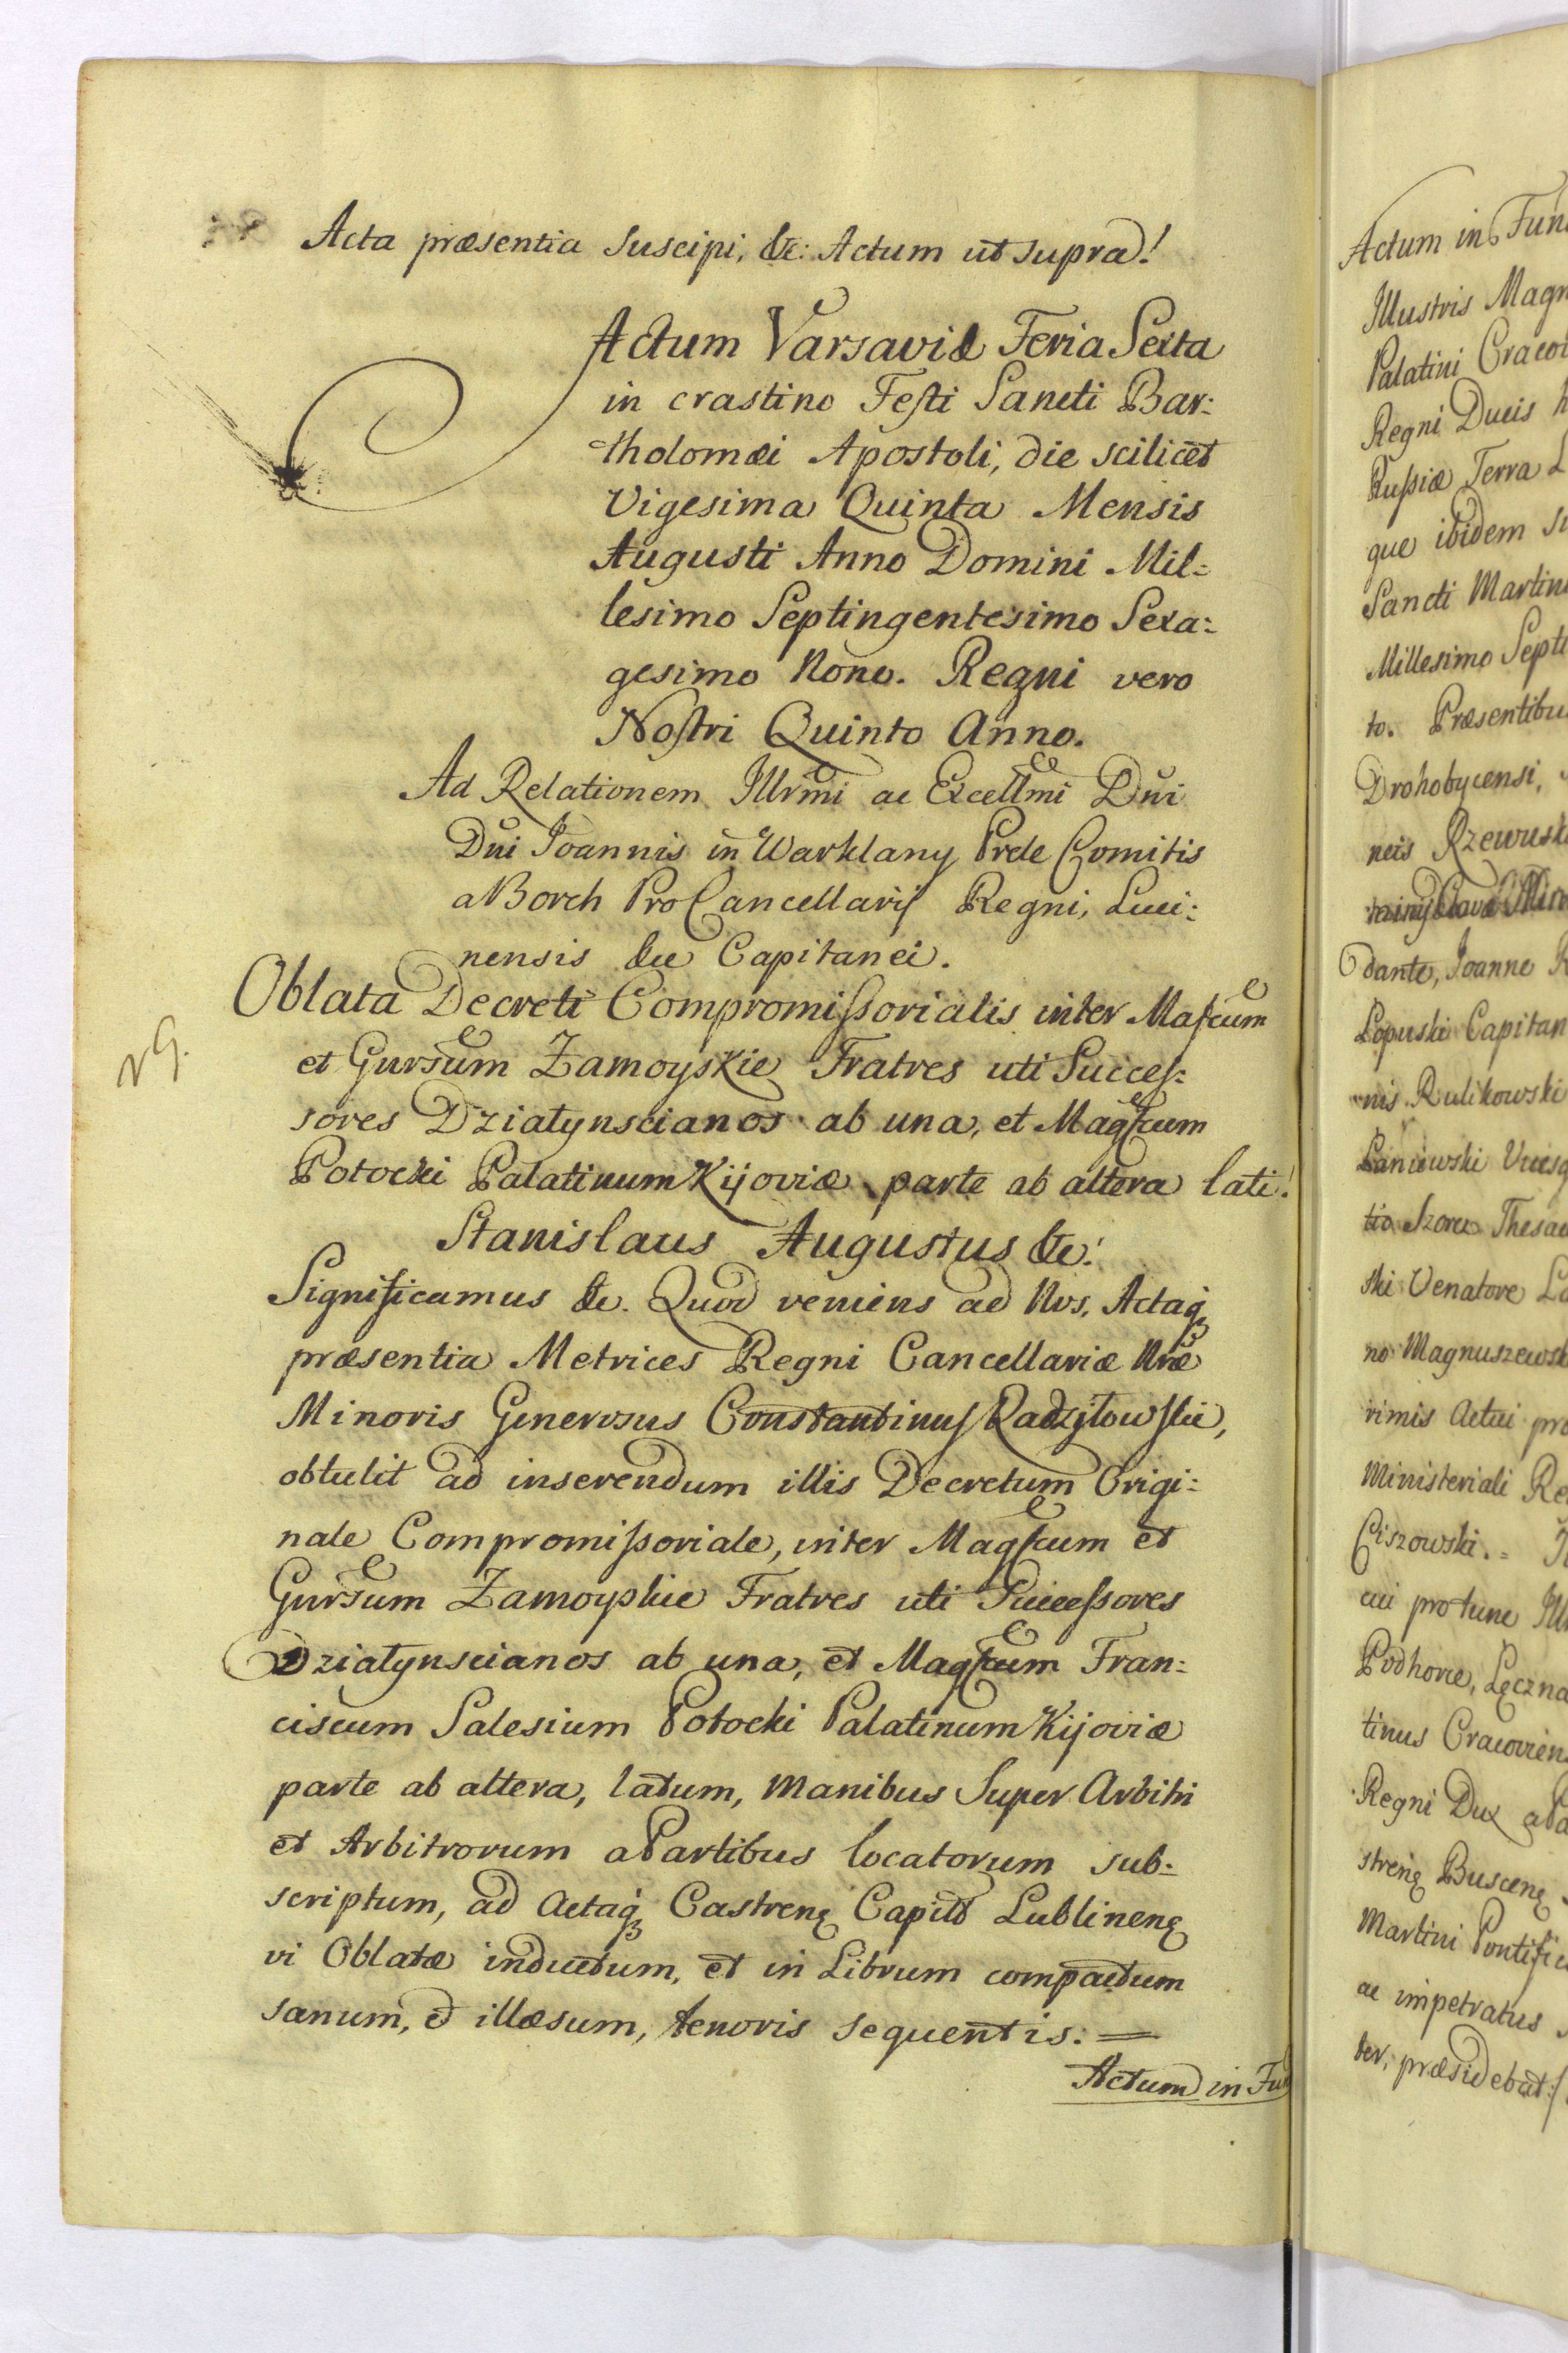 Acta præsentia suscipi, &c: Actum ut supra!
Actum Varsaviæ Feria Sexta
in crastino Festi Sancti Bar:
tholomæi Apostoli, die scilicet
Vigesima Quinta Mensis
Augusti Anno Domini Mil=
lesimo Septingentesimo Sexa=
gesimo Nono. Regni vero
Nostri Quinto Anno.
Ad Relationem Illrmi ac Excellmi Dni
Dni Joannis in Warklany Prele Comitis
a Borch Pro Cancellarij Regni, Luci:
nensis &c Capitanei.
Oblata Decreti Compromissorialis inter Mafcum
et Gnrsum Zamoyskie Fratres uti Succes:
sores Dziatynscianos ab una, et Magfcum
Potocki Palatinum Kijoviæ parte ab altera lati!
NG.
Stanislaus Augustus &c!
Significamus &c. Quod veniens ad Nos, Actaq
præsentia Metrices Regni Cancellariæ Nræ
Minoris Generosus Constantinus Radzytowskie,
obtulit ad inserendum illis Decretum Origi=
nale Compromissoriale, inter Magfcum et
Gnrsum Zamoyskie Fratres uti Successores
Dziatynscianos ab una, et Magfcum Fran=
ciscum Salesium Potocki Palatinum Kijoviæ
parte ab altera, latum, manibus Super Arbitri
et Arbitrorum a Partibus locatorum sub=
scriptum, ad Actaq Castrenę Capitl Lublinenę
vi Oblatæ inductum, et in Librum compactum
sanum, et illæsum, tenoris sequentis: =
Actum in Fun
Actum in Fun
Illustris Magn
Palatini Cracov
Regni Ducis
Russiæ Terra L
que ibidem
Sancti Martin
Millesimo Septi
to. Præsentibu
Drohobycensi,
neis Rzewuski
dante, Joanne R
Lopuski Capitan
nis Rulikowski
Laniewski
tio Thesau
ski Venatore Lo
no Magnuszewsk
rimis Actui pro
Ministeriali Re
Ciszowski. =
cui protunc Ill
Podhorce, Lęczna
tinus Cracovien
Regni Dux
strenę Buscenę
Martini Pontific
ac impetratus
ter, præsidebat:/